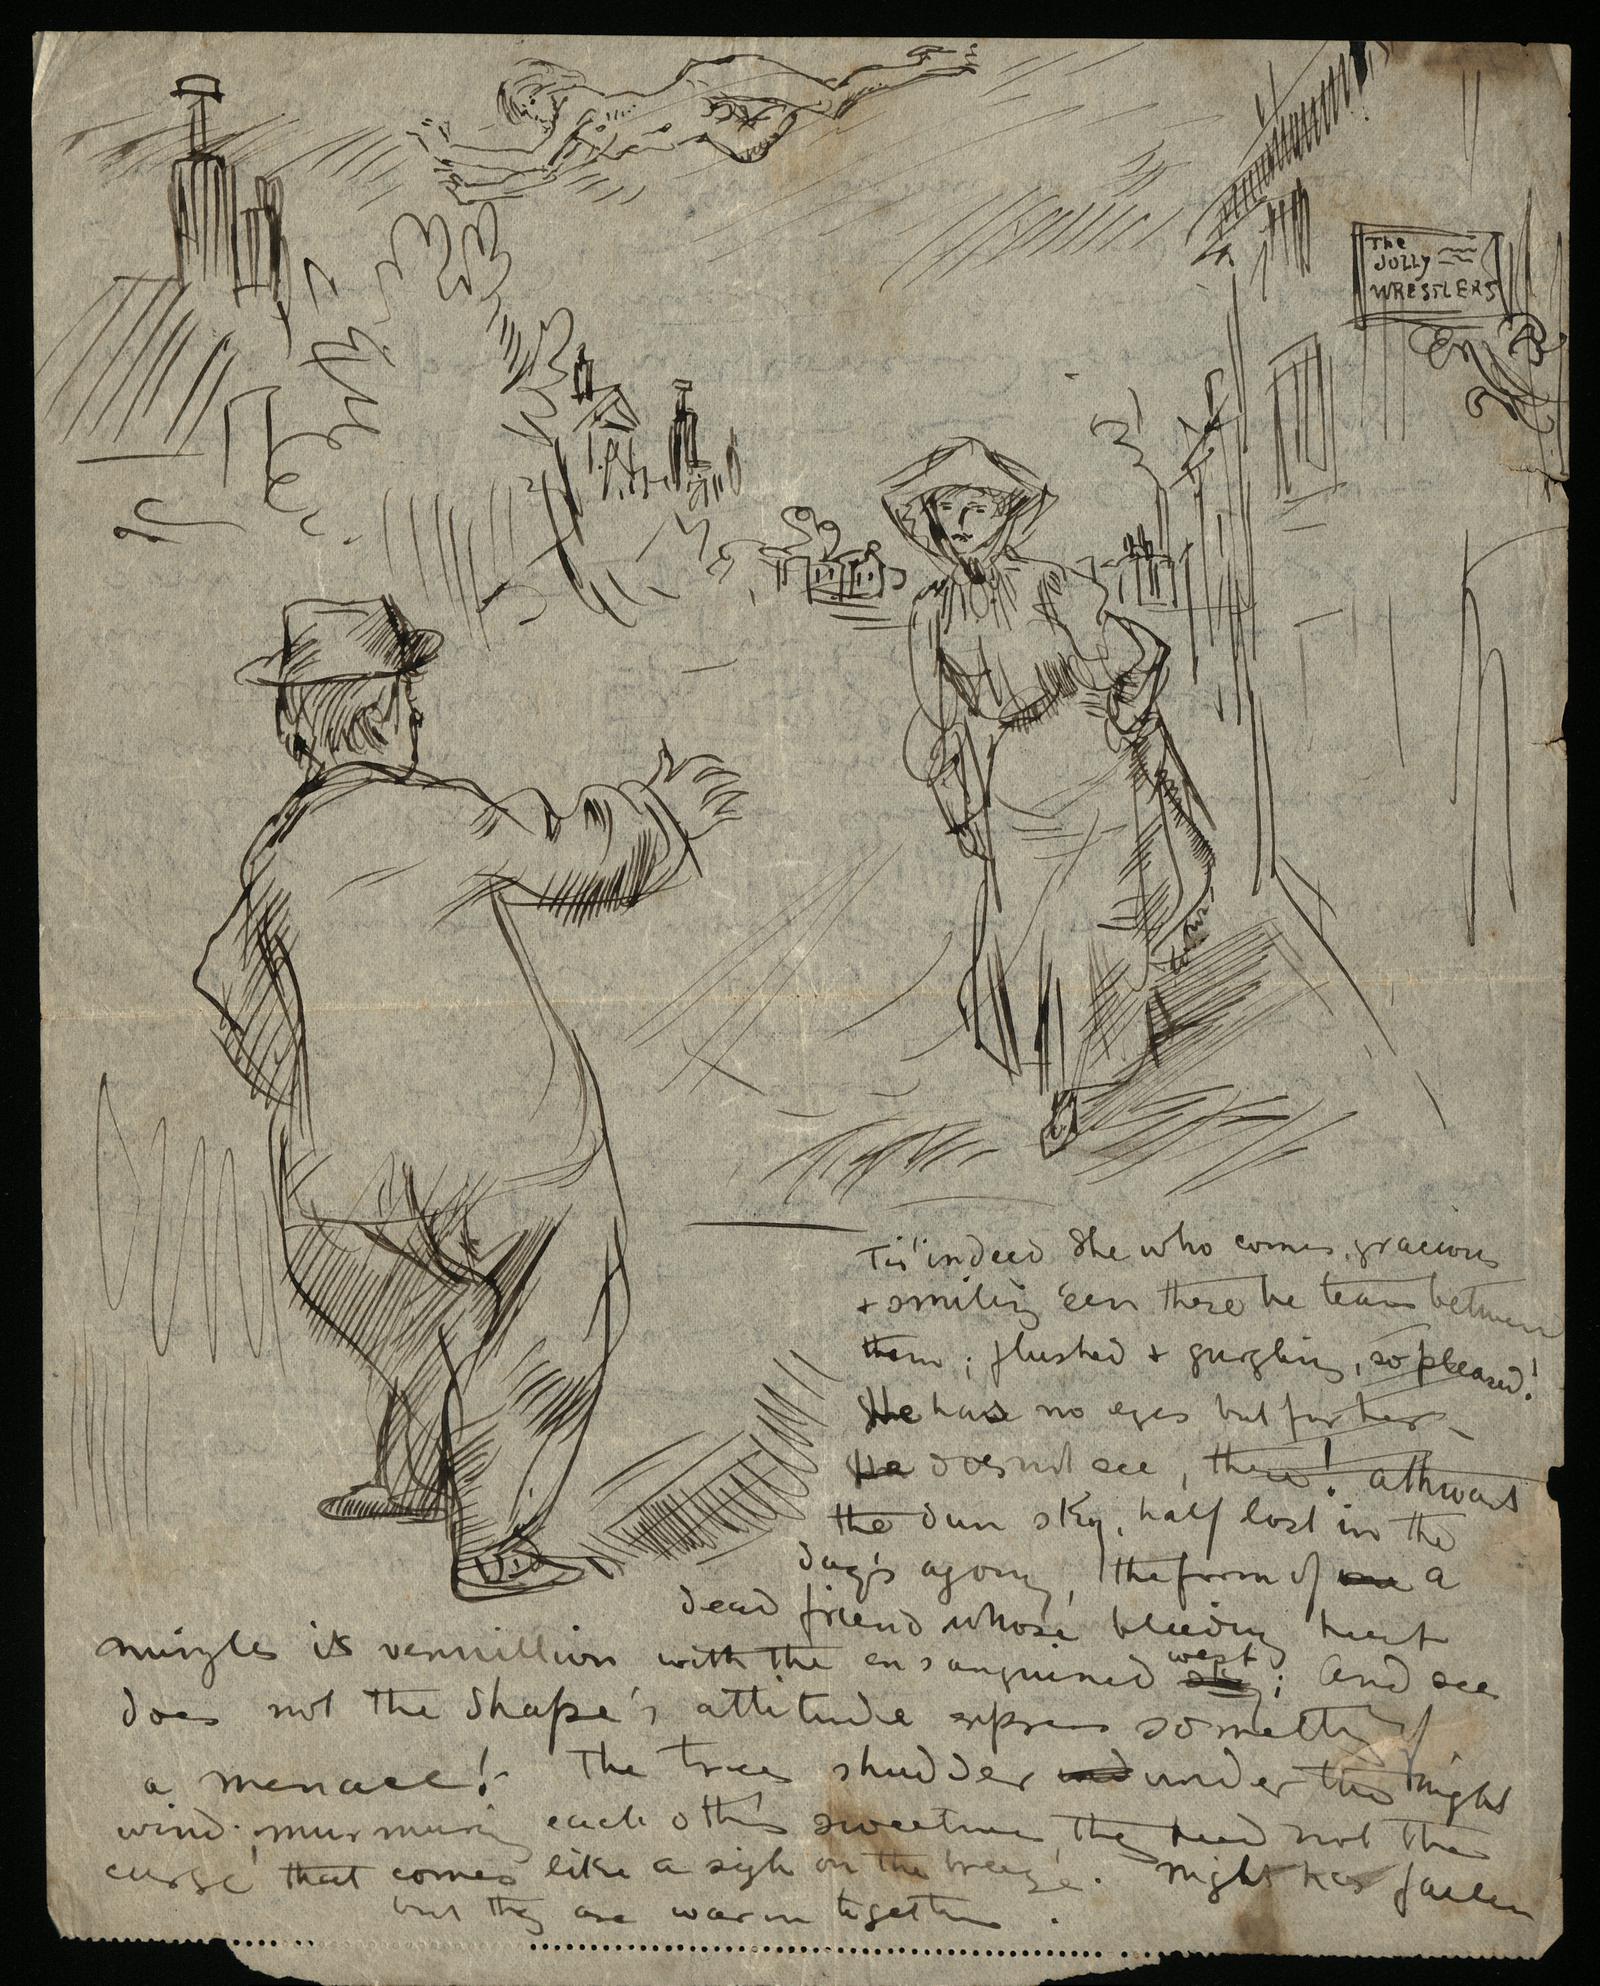 The
JOLLY
WRESTLERS
Tis' indeed she who comes, gracious
+ smiling 'een there be tears between
them; flushed + gurgling, so pleased!
He has no eyes but for her –
He does not see, there! athwart
the dun sky, half lost in the
day's agony, the from of a
dead friend whose bleeding heart
mingles its vermillion with the ensanguined west; And see
does not the shape's attitude express something of
a menace! The trees shudder under the night
wind murmuring each others sweetness they heed not the
curse that comes like a sigh on the breeze. Night has fallen
but they are warm together.